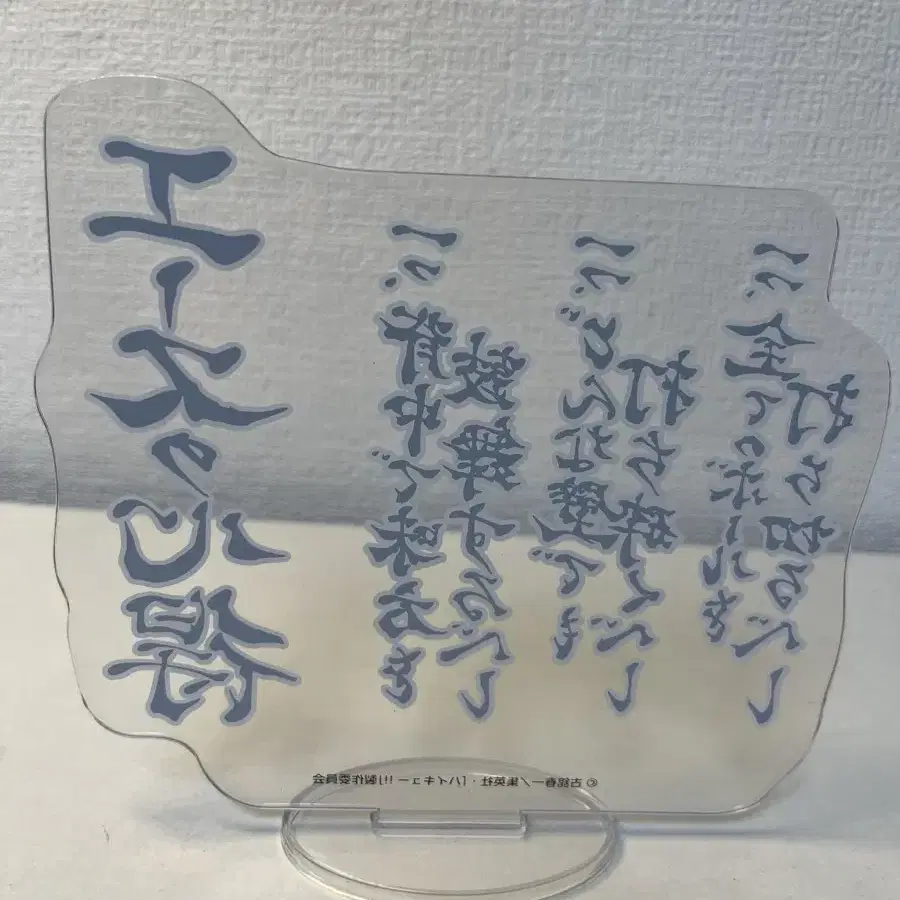 エースの心得
一つ、背中で味方を
鼓舞するべし
一つ、どんな壁でも
打ち砕くべし
一つ、全てのボールを
打ち切るべし
©古舘春一／集英社・「ハイキュー!!」製作委員会